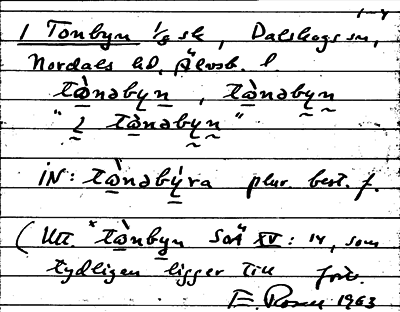 1 Tonbyn 1/8 sk, Dalskogs sn,
Nordals hd, Älvsb. l.
tὼnəbyn, tὼnəbyn
" i tὼnəbyn "
iN: tὼnəbýra plur. best. f.
(Utt. *tὼnbyn SOÄ XV: 14, som
tydligen ligger till
E. Rosén 1963